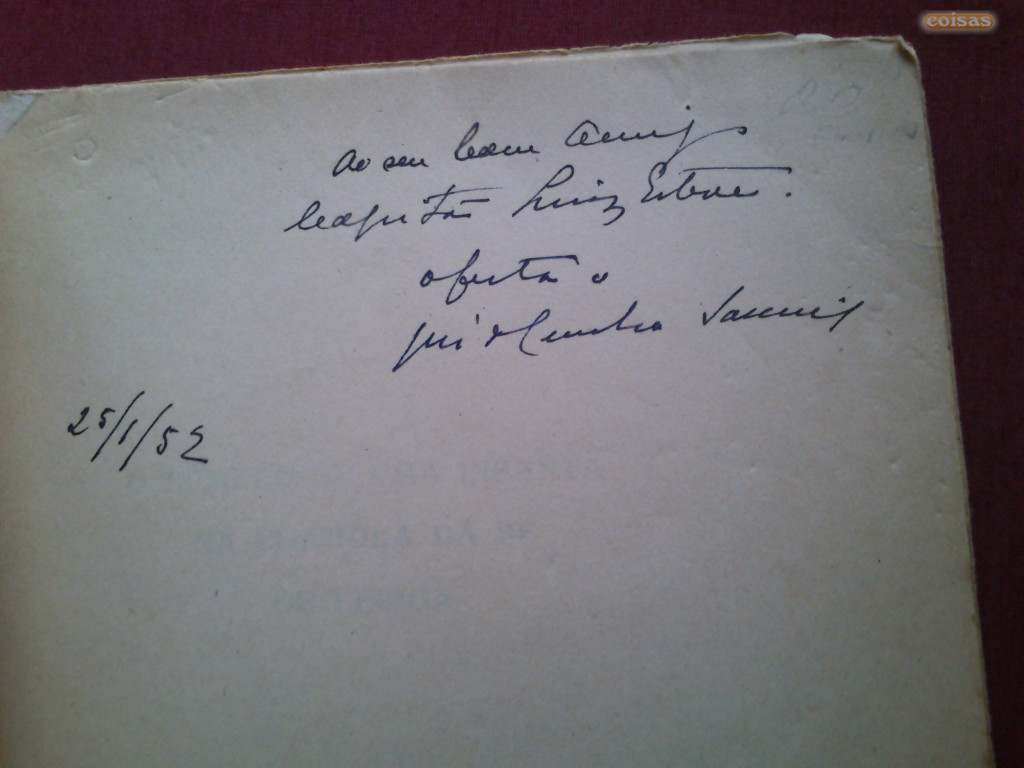 coisas
Ao seu caro Amigo
Capitão Luiz Esteves.
oferta o
José da Cunha Saraiva
25/1/52